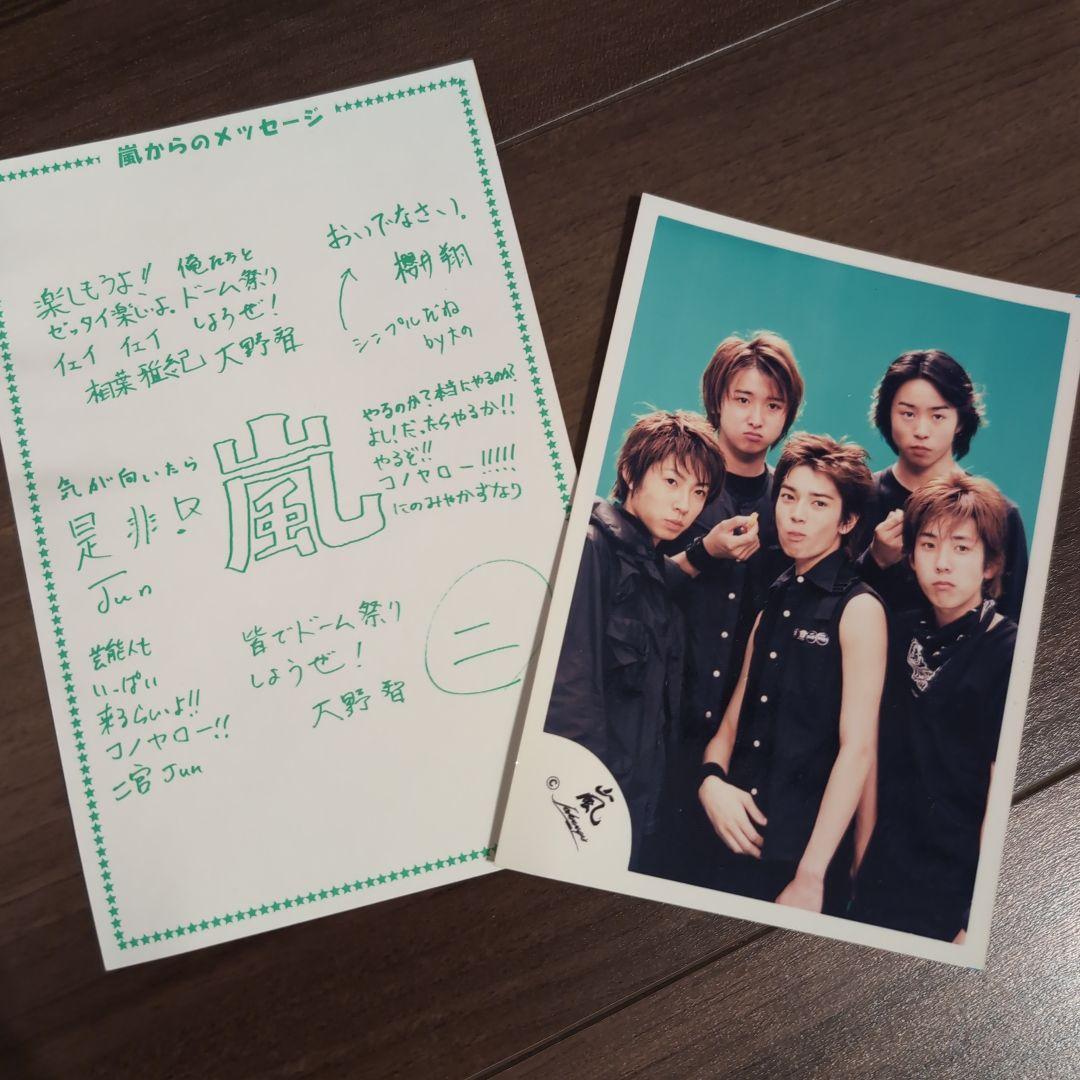 嵐からのメッセージ
楽しもうよ!!
ゼッタイ楽しいよ。
イェイ イェイ
相葉雅紀
俺たちと
ドーム祭り
しようぜ!
大野智
おいでなさい。
櫻井翔
シンプルだね
by大の
気が向いたら
是非只!
Jun
嵐
やるのか?本当にやるのか?
よし!だったらやるか!!
やるぞ!!
コノヤロー!!!!!
にのみやかずなり
芸能人も
いっぱい
来るらしいよ!!
コノヤロー!!
二宮 Jun
皆でドーム祭り
しようぜ!
大野智
二
嵐
©